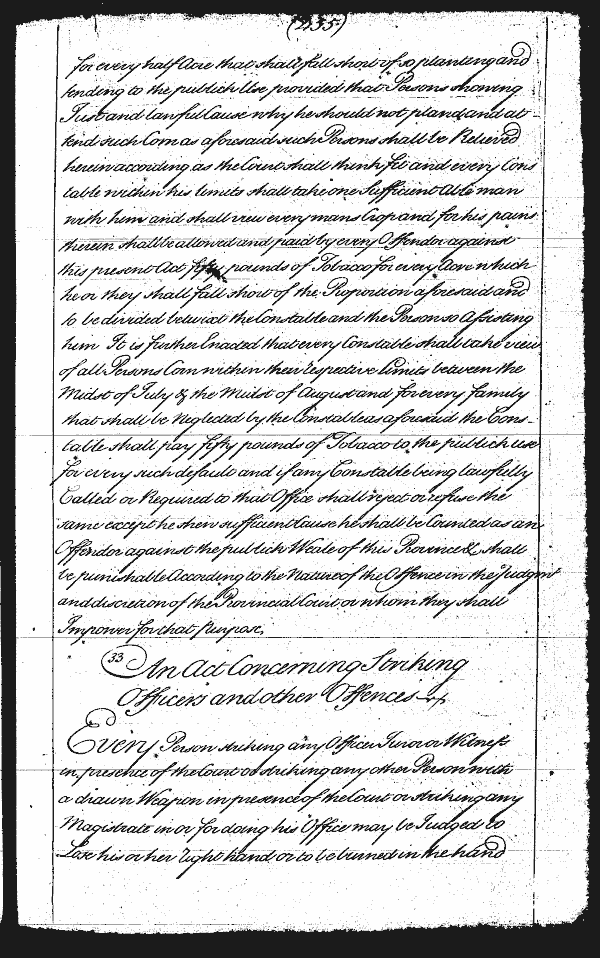 (235)
for every half Acre that shall fall short of so planting and
tending to the publick Use provided that Persons shewing
Just and lawful Cause why he should not plant and at
tend such Corn as aforesaid such Persons shall be Relieved
herein according as the Court shall think fit and every Cons
table within his limits shall take one Sufficient Able man
with him and shall view every mans Crop and for his pains
therein shall be allowed and paid by every Offendor against
this present Act fifty pounds of Tobacco for every Acre which
he or they shall fall short of the Proportion aforesaid and
to be divided betwixt the Constable and the Person so Assisting
him It is further Enacted that every Constable shall take view
of all Persons Corn within their respective Limits between the
Midst of July & the Midst of August and for every family
that shall be Neglected by the Constable as aforesaid the Cons-
table shall pay fifty pounds of Tobacco to the publick use
for every such default and if any Constable being lawfully
Called or Required to that Office shall reject or refuse the
same except he shew sufficient Cause he shall be Counted as an
Offendor against the publick Weale of this Province & shall
be punishable According to the Nature of the Offence in the Judgmt
and discretion of the Provincial Court or whom they shall
Impower for that purpose,
33 An Act Concerning Striking
Officers and other Offences
Every Person striking any Officer Juror or Witness
in presence of the Court or striking any other Person with
a drawn Weapon in presence of the Court or striking any
Magistrate in or for doing his Office may be Judged to
Lose his or her right hand or to be burned in the hand